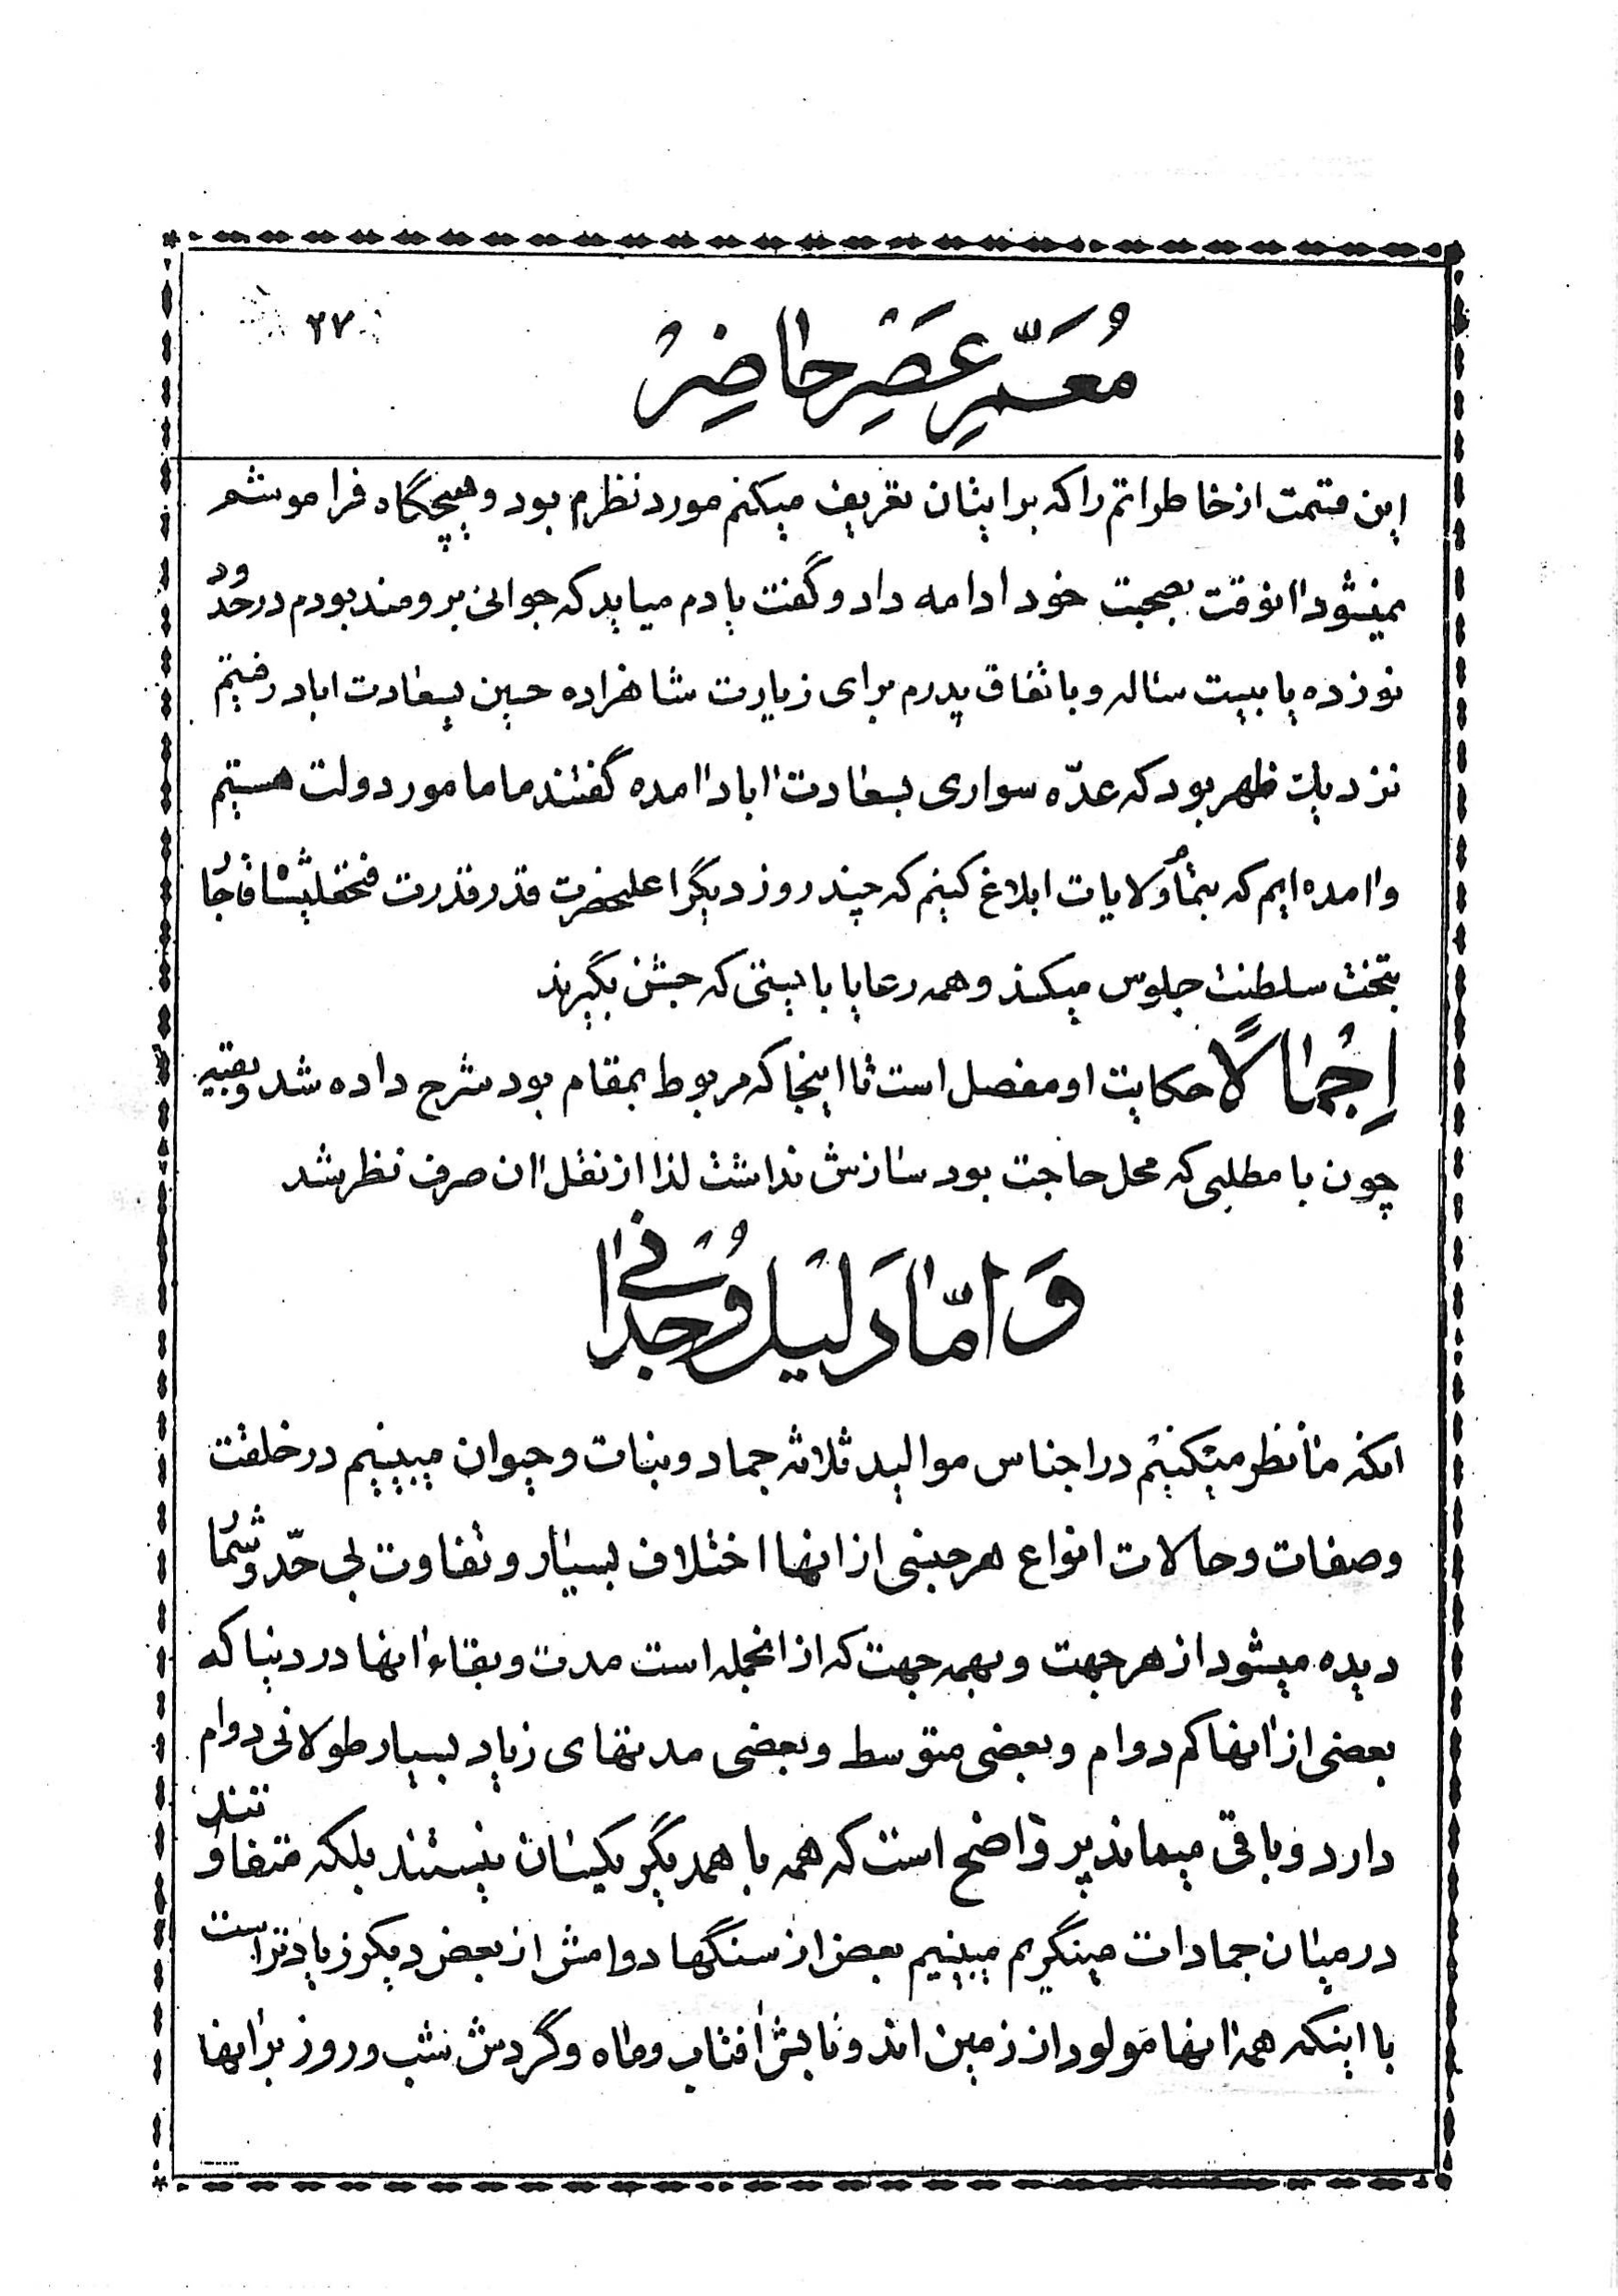 ۲۷
مُعَمَّرِ عَصْرِ حَاضِرْ
این قسمت از خاطراتم را که برایتان تعریف میکنم مورد نظرم بود و هیچگاه فراموشم
نمیشود آنوقت بصحبت خود ادامه داد و گفت یادم میاید که جوانی برومند بودم در حُدُود
نوزده یا بیست ساله و باتفاق پدرم برای زیارت شاهزاده حسین بسعادت اباد رفتیم
نزدیک ظهر بود که عدّه سواری بسعادت اباد امده گفتند ما مامور دولت هستیم
و امده ایم که بتمام ولایات ابلاغ کنیم که چند روز دیگر اعلیحضرت قدر قدرت فتحعلیشاه قاجار
بتخت سلطنت جلوس میکند و همه رعایا بایستی که جشن بگیرند
اِجْمٰالًا حکایت او مفصل است تا اینجا که مربوط بمقام بود شرح داده شد و بقیه
چون با مطلبی که محل حاجت بود سازش نداشت لذا از نقل ان صرف نظر شد
وَ امّٰا دَلیل وُجْدٰانی
انکه ما نظر میکنیم در اجناس موالید ثلاثه جماد و نبات و حیوان میبینیم در خلقت
و صفات و حالات انواع هر جنسی از انها اختلاف بسیار و تفاوت بی حدّ و شمار
دیده میشود از هر جهت و بهمه جهت که از انجمله است مدت و بقاء انها در دنیا که
بعضی از انها کم دوام و بعضی متوسط و بعضی مدتهای زیاد بسیار طولانی دوام
دارد و باقی میماند پر واضح است که همه با همدیگر یکسان نیستند بلکه متفاوتند
در میان جمادات مینگریم میبینیم بعض از سنگها دوامش از بعض دیگر زیادتر است
با اینکه همه انها مولود از زمین اند و تابش افتاب و ماه و گردش شب و روز بر انها